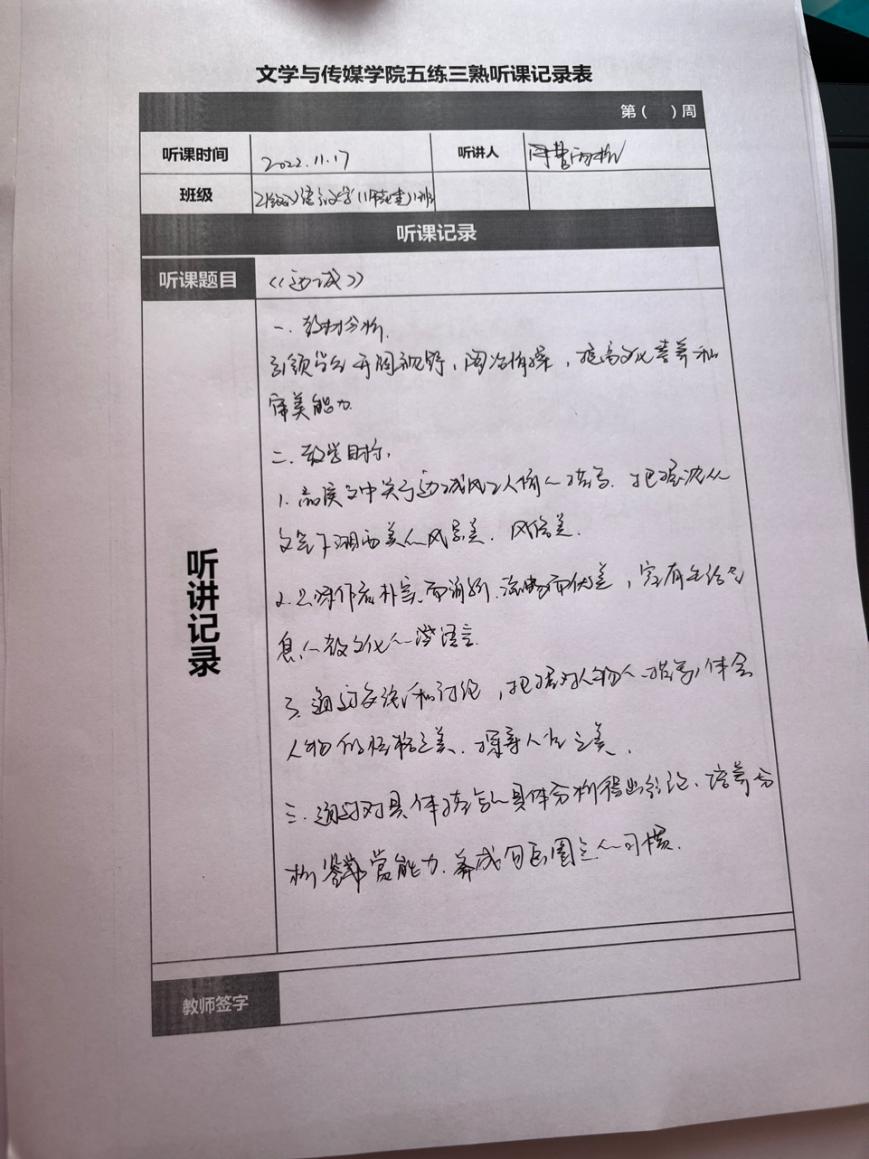 文学与传媒学院五练三熟听课记录表
第（ ）周
听课时间 2022.11.17 听讲人
班级
听课记录
听课题目 《边城》
听讲记录
一、教材分析.
引领学生开阔视野,陶冶情操,提高文化素养和
审美能力.
二、教学目标.
1. 品读文中关于边城风土人情的描写.把握沈从
文笔下湘西美的风景美.风俗美.
2. 品味作者朴实而清新.流畅而优美,富有生活气
息
3. 通过 和讨论,把握对人物的描写,体会
人物的性格之美.探寻人性之美.
三.通过对具体 的具体分析得出结论.培养分
析鉴赏能力.养成 的习惯.
教师签字